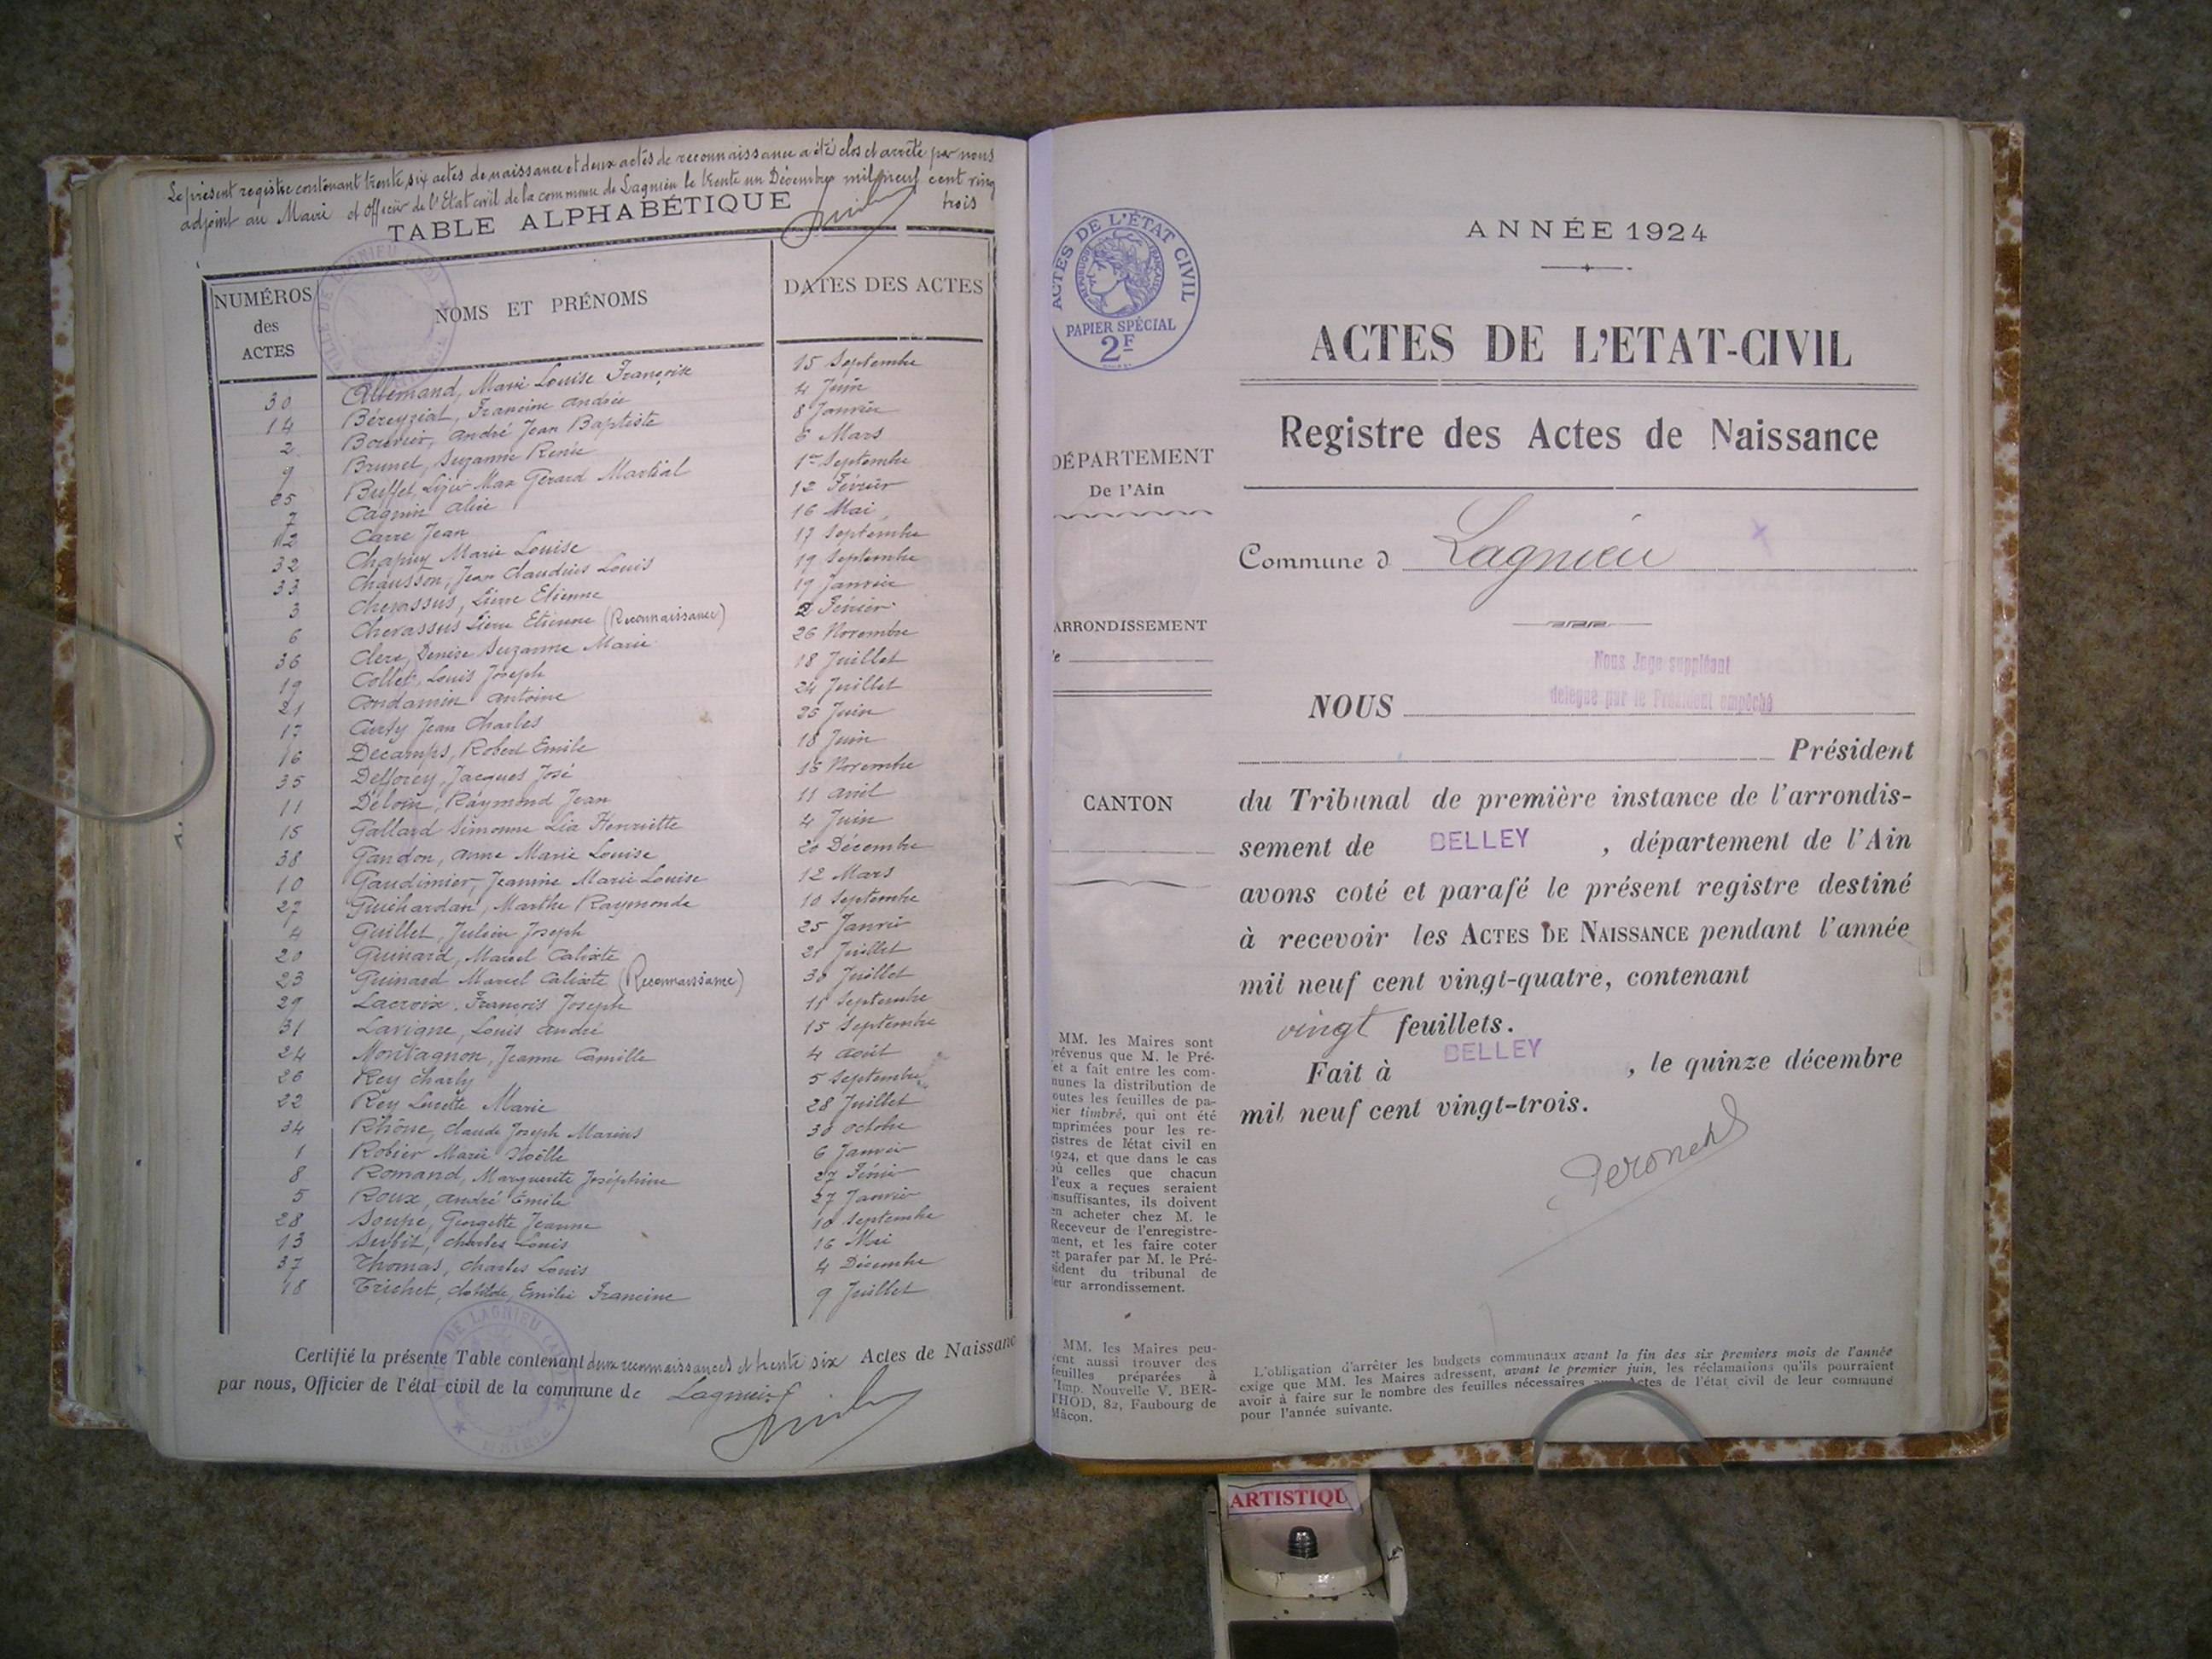 Le présent registre contenant trente six actes de naissance et deux actes de reconnaissance a été clos et arrêté par nous
adjoint au Maire et Officier de l'Etat civil de la commune de Lagnieu le trente un Décembre mil neuf cent vingt
trois
TABLE ALPHABÉTIQUE
NUMÉROS des ACTES
NOMS ET PRÉNOMS
DATES DES ACTES
30 Allemand, Marie Louise Françoise 15 Septembre
14 Béreyziat, Francine Andrée 4 Juin
2 Bouvier, André Jean Baptiste 8 Janvier
9 Brunet, Suzanne Renée 6 Mars
25 Buffet, Max Gérard Martial 1er Septembre
7 Cagnin Alice 12 Février
12 Carre Jean 16 Mai
32 Chapuy Marie Louise 17 Septembre
33 Chausson, Jean Claudius Louis 19 Septembre
3 Chevassus, Pierre Etienne 19 Janvier
6 Chevassus Pierre Etienne (Reconnaissance) 2 Février
36 Clerc, Denise Suzanne Marie 26 Novembre
19 Collet, Louis Joseph 18 Juillet
21 Condamin Antoine 24 Juillet
17 Curty Jean Charles 25 Juin
16 Decamps, Robert Emile 18 Juin
35 Défforey, Jacques José 15 Novembre
11 Déloin, Raymond Jean 11 Avril
15 Gallard Simonne Lia Henriette 4 Juin
38 Gandon, Anne Marie Louise 20 Décembre
10 Gaudimier, Jeannine Marie Louise 12 Mars
27 Guichardan, Marthe Raymonde 10 Septembre
4 Guillet, Julien Joseph 25 Janvier
20 Guinard, Marcel Calixte 21 Juillet
23 Guinard Marcel Calixte (Reconnaissance) 30 Juillet
29 Lacroix, François Joseph 11 Septembre
31 Lavigne, Louis André 15 Septembre
24 Montagnon, Jeanne Camille 4 Août
26 Rey Charly 5 Septembre
22 Rey Lucette Marie 28 Juillet
34 Rhône, Claude Joseph Marius 30 Octobre
1 Robier Marie Noëlle 6 Janvier
8 Romand, Marguerite Joséphine 27 Février
5 Roux, André Emile 27 Janvier
28 Soupe, Georgette Jeanne 10 Septembre
13 Charles Louis 16 Mai
37 Thomas, Charles Louis 4 Décembre
18 Trichet, Clotilde, Emilie Francine 9 Juillet
Certifié la présente Table contenant deux reconnaissances et trente six Actes de Naissance
par nous, Officier de l'état civil de la commune de Lagnieu
VILLE DE LAGNIEU
DE LAGNIEU (AIN)
MAIRIE
ACTES DE L'ÉTAT CIVIL
RÉPUBLIQUE FRANÇAISE
PAPIER SPÉCIAL
2F
DÉPARTEMENT
De l'Ain
ARRONDISSEMENT
CANTON
MM. les Maires sont
prévenus que M. le Pré-
fet a fait entre les com-
munes la distribution de
toutes les feuilles de pa-
pier timbré, qui ont été
imprimées pour les re-
gistres de l'état civil en
1924, et que dans le cas
où celles que chacun
d'eux a reçues seraient
insuffisantes, ils doivent
en acheter chez M. le
Receveur de l'enregistre-
ment, et les faire coter
et parafer par M. le Pré-
sident du tribunal de
leur arrondissement.
MM. les Maires peu-
vent aussi trouver des
feuilles préparées à
l'Imp. Nouvelle V. BER-
THOD, 82, Faubourg de
Mâcon.
ANNÉE 1924
ACTES DE L'ETAT-CIVIL
Registre des Actes de Naissance
Commune d Lagnieu
Nous Juge suppléant
délégué par le Président empêché
NOUS
Président
du Tribunal de première instance de l'arrondis-
sement de BELLEY , département de l'Ain
avons coté et parafé le présent registre destiné
à recevoir les ACTES DE NAISSANCE pendant l'année
mil neuf cent vingt-quatre, contenant
vingt feuillets.
Fait à BELLEY , le quinze décembre
mil neuf cent vingt-trois.
L'obligation d'arrêter les budgets communaux avant la fin des six premiers mois de l'année
exige que MM. les Maires adressent, avant le premier juin, les réclamations qu'ils pourraient
avoir à faire sur le nombre des feuilles nécessaires aux Actes de l'état civil de leur commune
pour l'année suivante.
ARTISTIQU